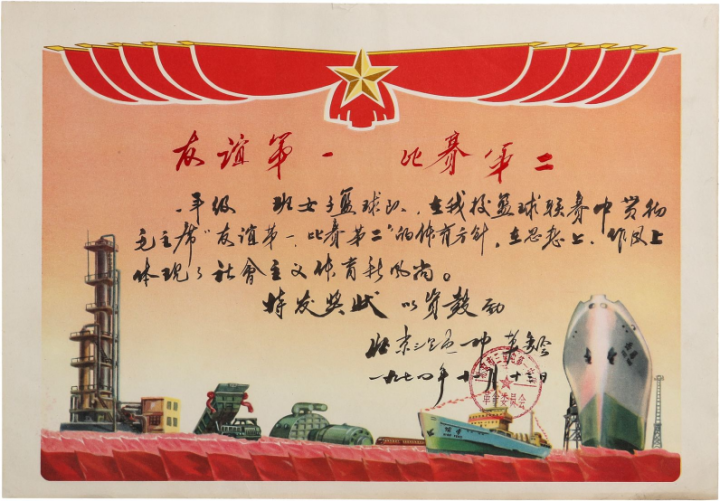 友谊第一 比赛第二
一年级 班女子篮球队,在我校篮球联赛中贯彻
毛主席“友谊第一、比赛第二”的体育方针,在思想上、作风上
体现了社會主义体育新风尚。
特发奖状 以资鼓励
北京三里屯一中革委会
一九七四年十二月十三日
革命委员会